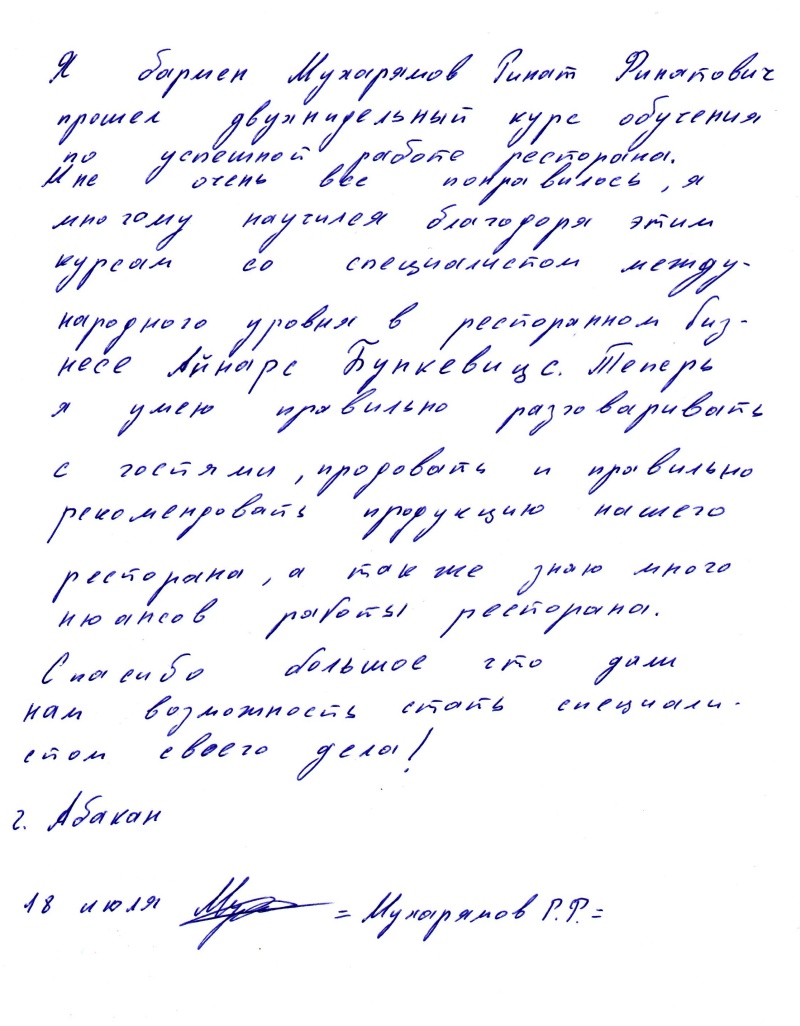 Я бармен Мухарямов Ринат Ринатович
прошел двухнидельный курс обучения
по успешной работе ресторана.
Мне очень все понравилось, я
многому научился благодоря этим
курсам со специалистом между-
народного уровня в ресторанном биз-
несе Айнарс Бункевицс. Теперь
я умею правильно разговаривать
с гостями, продовать и правильно
рекомендовать продукцию нашего
ресторана, а так же знаю много
нюансов работы ресторана.
Спасибо большое что дали
нам возможность стать специали-
стом своего дела!
г. Абакан
18 июля = Мухарямов Р.Р. =